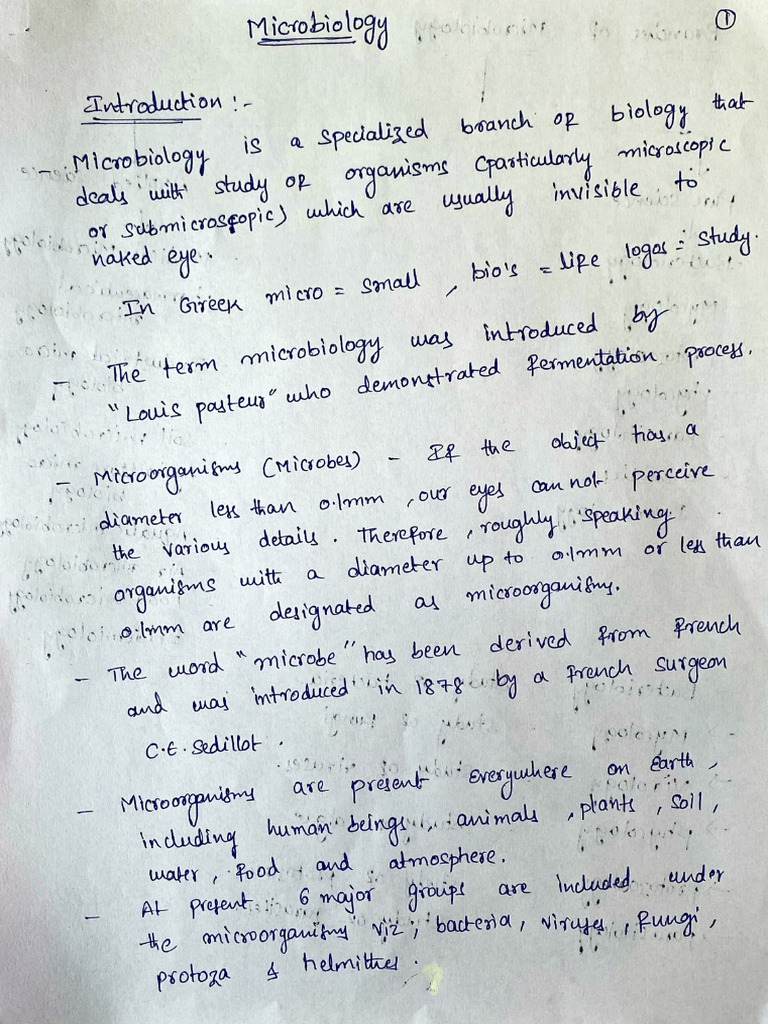 Microbiology
①
Introduction :-
- Microbiology is a specialized branch of biology that
deals with study of organisms (particularly microscopic
or submicroscopic) which are usually invisible to
naked eye.
In Greek micro = small, bio's = life logos = study.
- The term microbiology was introduced by
"Louis pasteur" who demonstrated fermentation process.
- Microorganisms (Microbes) - If the object has a
diameter less than 0.1mm, our eyes can not perceive
the various details. Therefore, roughly speaking
organisms with a diameter up to 0.1mm or less than
0.1mm are designated as microorganisms.
- The word "microbe" has been derived from french
and was introduced in 1878 by a french surgeon
C.E. Sedillot.
- Microorganisms are present everywhere on Earth,
including human beings, animals, plants, soil,
water, food and atmosphere.
- At present 6 major groups are included under
the microorganisms viz; bacteria, viruses, fungi,
protoza & helmithes.